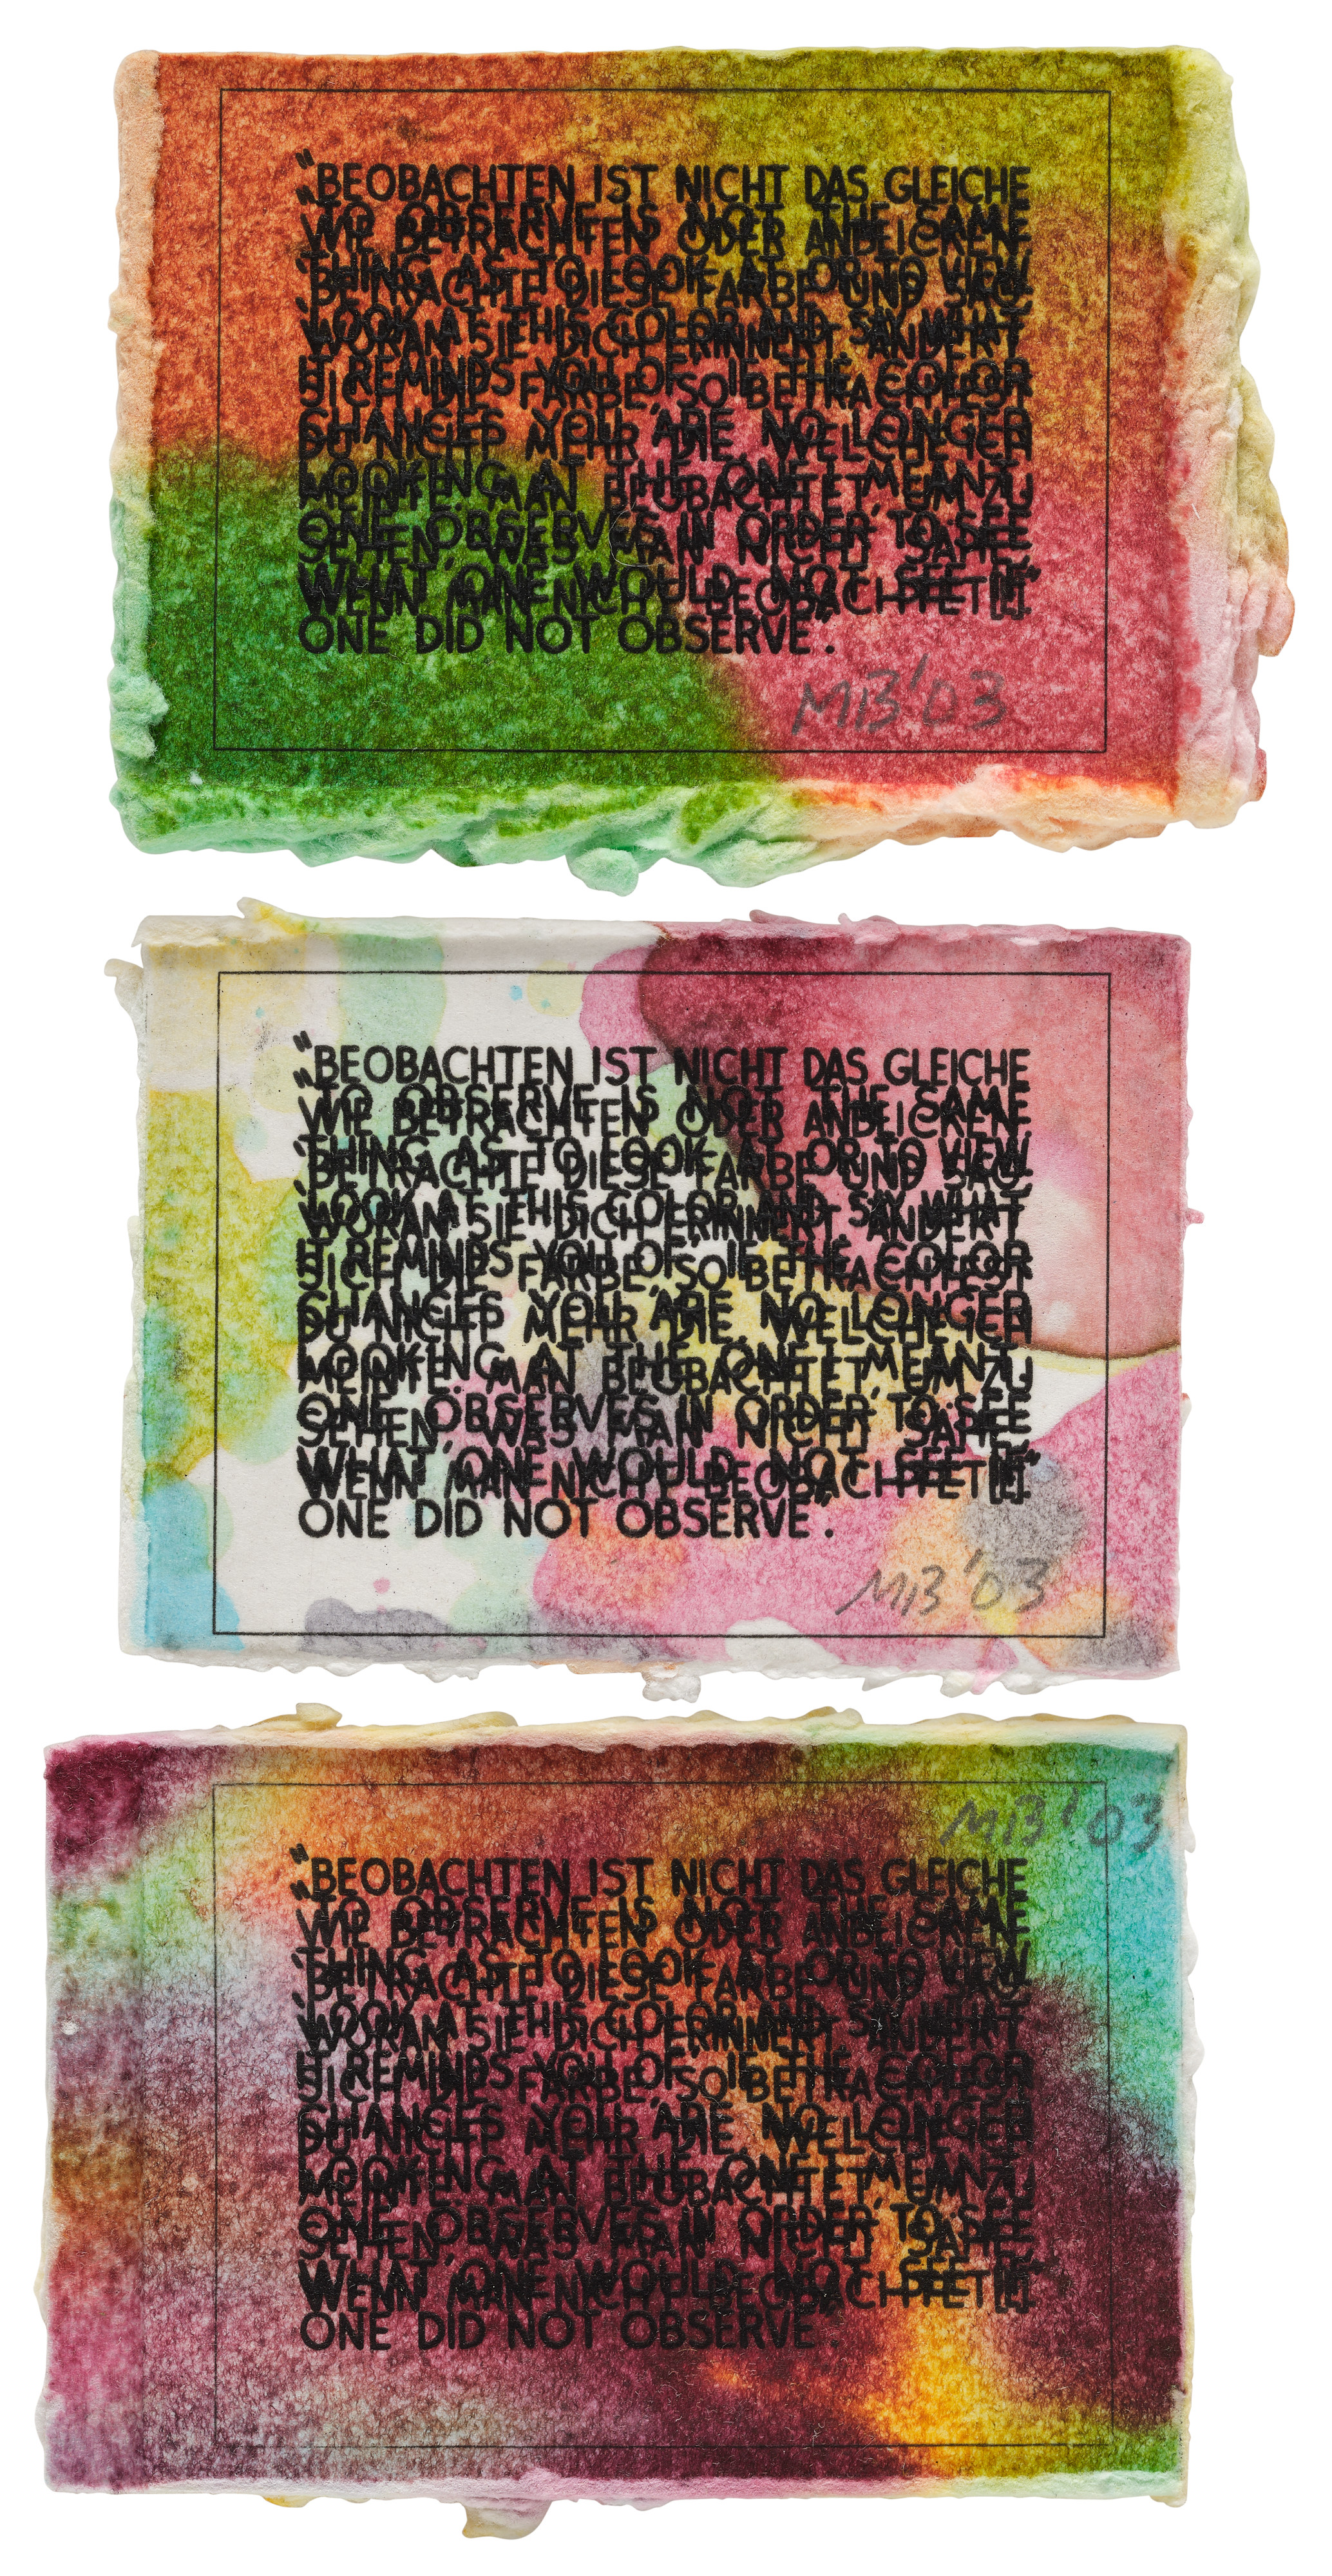 "BEOBACHTEN IST NICHT DAS GLEICHE
"TO OBSERVE IS NOT THE SAME
WIE BETRACHTEN ODER ANBLICKEN.
THING AS TO LOOK AT OR TO VIEW.
'BETRACHTE DIESE FARBE UND SAG,
'LOOK AT THIS COLOR AND SAY WHAT
WORAN SIE DICH ERINNERT. ÄNDERT
IT REMINDS YOU OF.' IF THE COLOR
SICH DIE FARBE, SO BETRACHTEST
CHANGES YOU ARE NO LONGER
DU NICHT MEHR DIE, WELCHE ICH
LOOKING AT THE ONE I MEANT.
MEINTE. MAN BEOBACHTET, UM ZU
ONE OBSERVES IN ORDER TO SEE
SEHEN, WAS MAN NICHT SÄHE,
WHAT ONE WOULD NOT SEE IF
WENN MAN NICHT BEOBACHTET"
ONE DID NOT OBSERVE".
MB'03
"BEOBACHTEN IST NICHT DAS GLEICHE
"TO OBSERVE IS NOT THE SAME
WIE BETRACHTEN ODER ANBLICKEN.
THING AS TO LOOK AT OR TO VIEW.
'BETRACHTE DIESE FARBE UND SAG,
'LOOK AT THIS COLOR AND SAY WHAT
WORAN SIE DICH ERINNERT. ÄNDERT
IT REMINDS YOU OF.' IF THE COLOR
SICH DIE FARBE, SO BETRACHTEST
CHANGES YOU ARE NO LONGER
DU NICHT MEHR DIE, WELCHE ICH
LOOKING AT THE ONE I MEANT.
MEINTE. MAN BEOBACHTET, UM ZU
ONE OBSERVES IN ORDER TO SEE
SEHEN, WAS MAN NICHT SÄHE,
WHAT ONE WOULD NOT SEE IF
WENN MAN NICHT BEOBACHTET"
ONE DID NOT OBSERVE".
MB'03
MB'03
"BEOBACHTEN IST NICHT DAS GLEICHE
"TO OBSERVE IS NOT THE SAME
WIE BETRACHTEN ODER ANBLICKEN.
THING AS TO LOOK AT OR TO VIEW.
'BETRACHTE DIESE FARBE UND SAG,
'LOOK AT THIS COLOR AND SAY WHAT
WORAN SIE DICH ERINNERT. ÄNDERT
IT REMINDS YOU OF.' IF THE COLOR
SICH DIE FARBE, SO BETRACHTEST
CHANGES YOU ARE NO LONGER
DU NICHT MEHR DIE, WELCHE ICH
LOOKING AT THE ONE I MEANT.
MEINTE. MAN BEOBACHTET, UM ZU
ONE OBSERVES IN ORDER TO SEE
SEHEN, WAS MAN NICHT SÄHE,
WHAT ONE WOULD NOT SEE IF
WENN MAN NICHT BEOBACHTET"
ONE DID NOT OBSERVE".